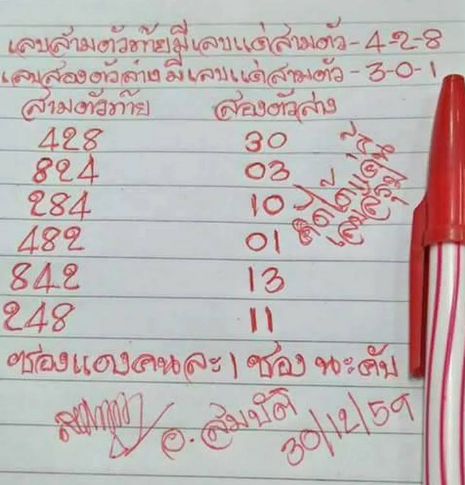 เลขสามตัวท้ายมีเลขแค่สามตัว - 4-2-8
เลขสองตัวล่างมีเลขแค่สามตัว - 3-0-1
สามตัวท้าย สองตัวล่าง
428 30
824 03
284 10
482 01
842 13
248 11
ซองแดงคนละ 1 ซอง นะคับ
อ. สมบัติ
30/12/59